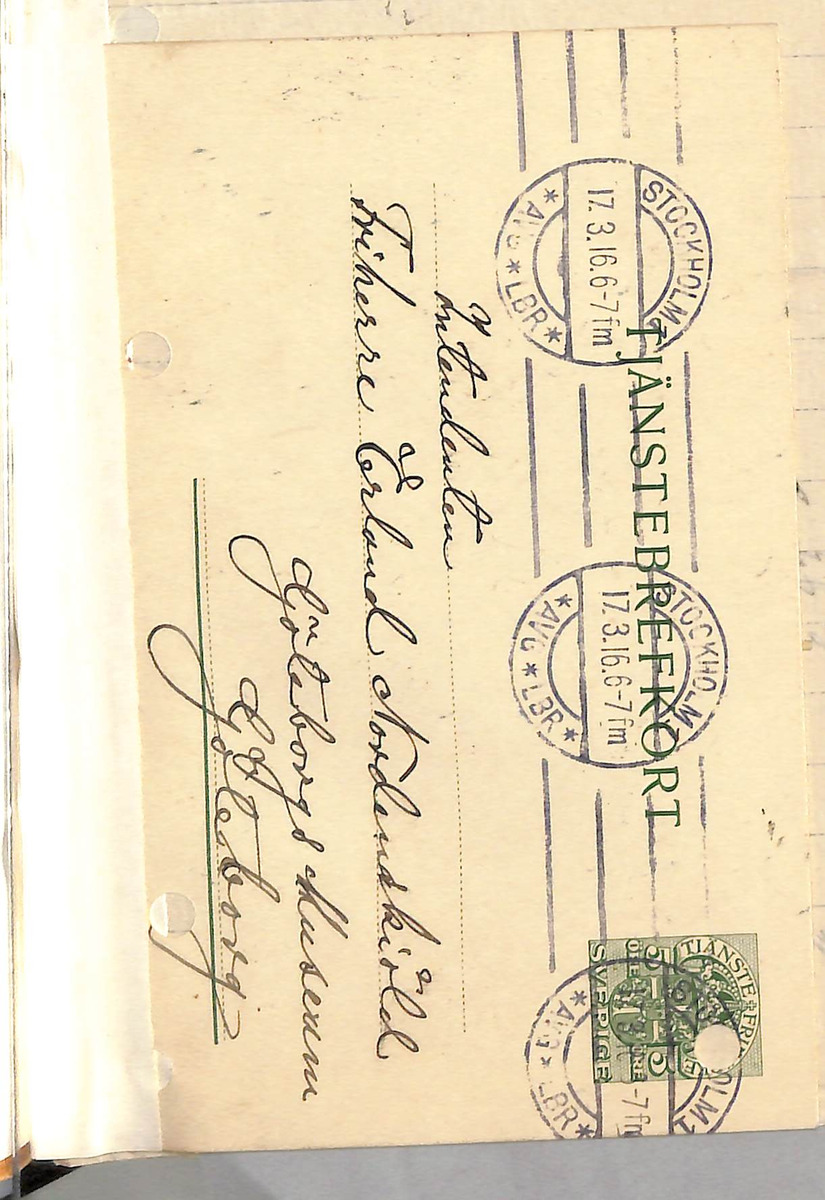 TJÄNSTEBREFKORT
STOCKHOLM 1
17.3.16.6-7fm
* AVG * LBR *
STOCKHOLM
17.3.16.6-7fm
* AVG * LBR *
TJÄNSTE FRI
5 5
ÖRE ÖRE
SVERIGE
OLM 1
-7fm
* AVG * LBR *
Intendenten
Friherre Erland Nordenskiöld
Göteborgs Museum
Göteborg